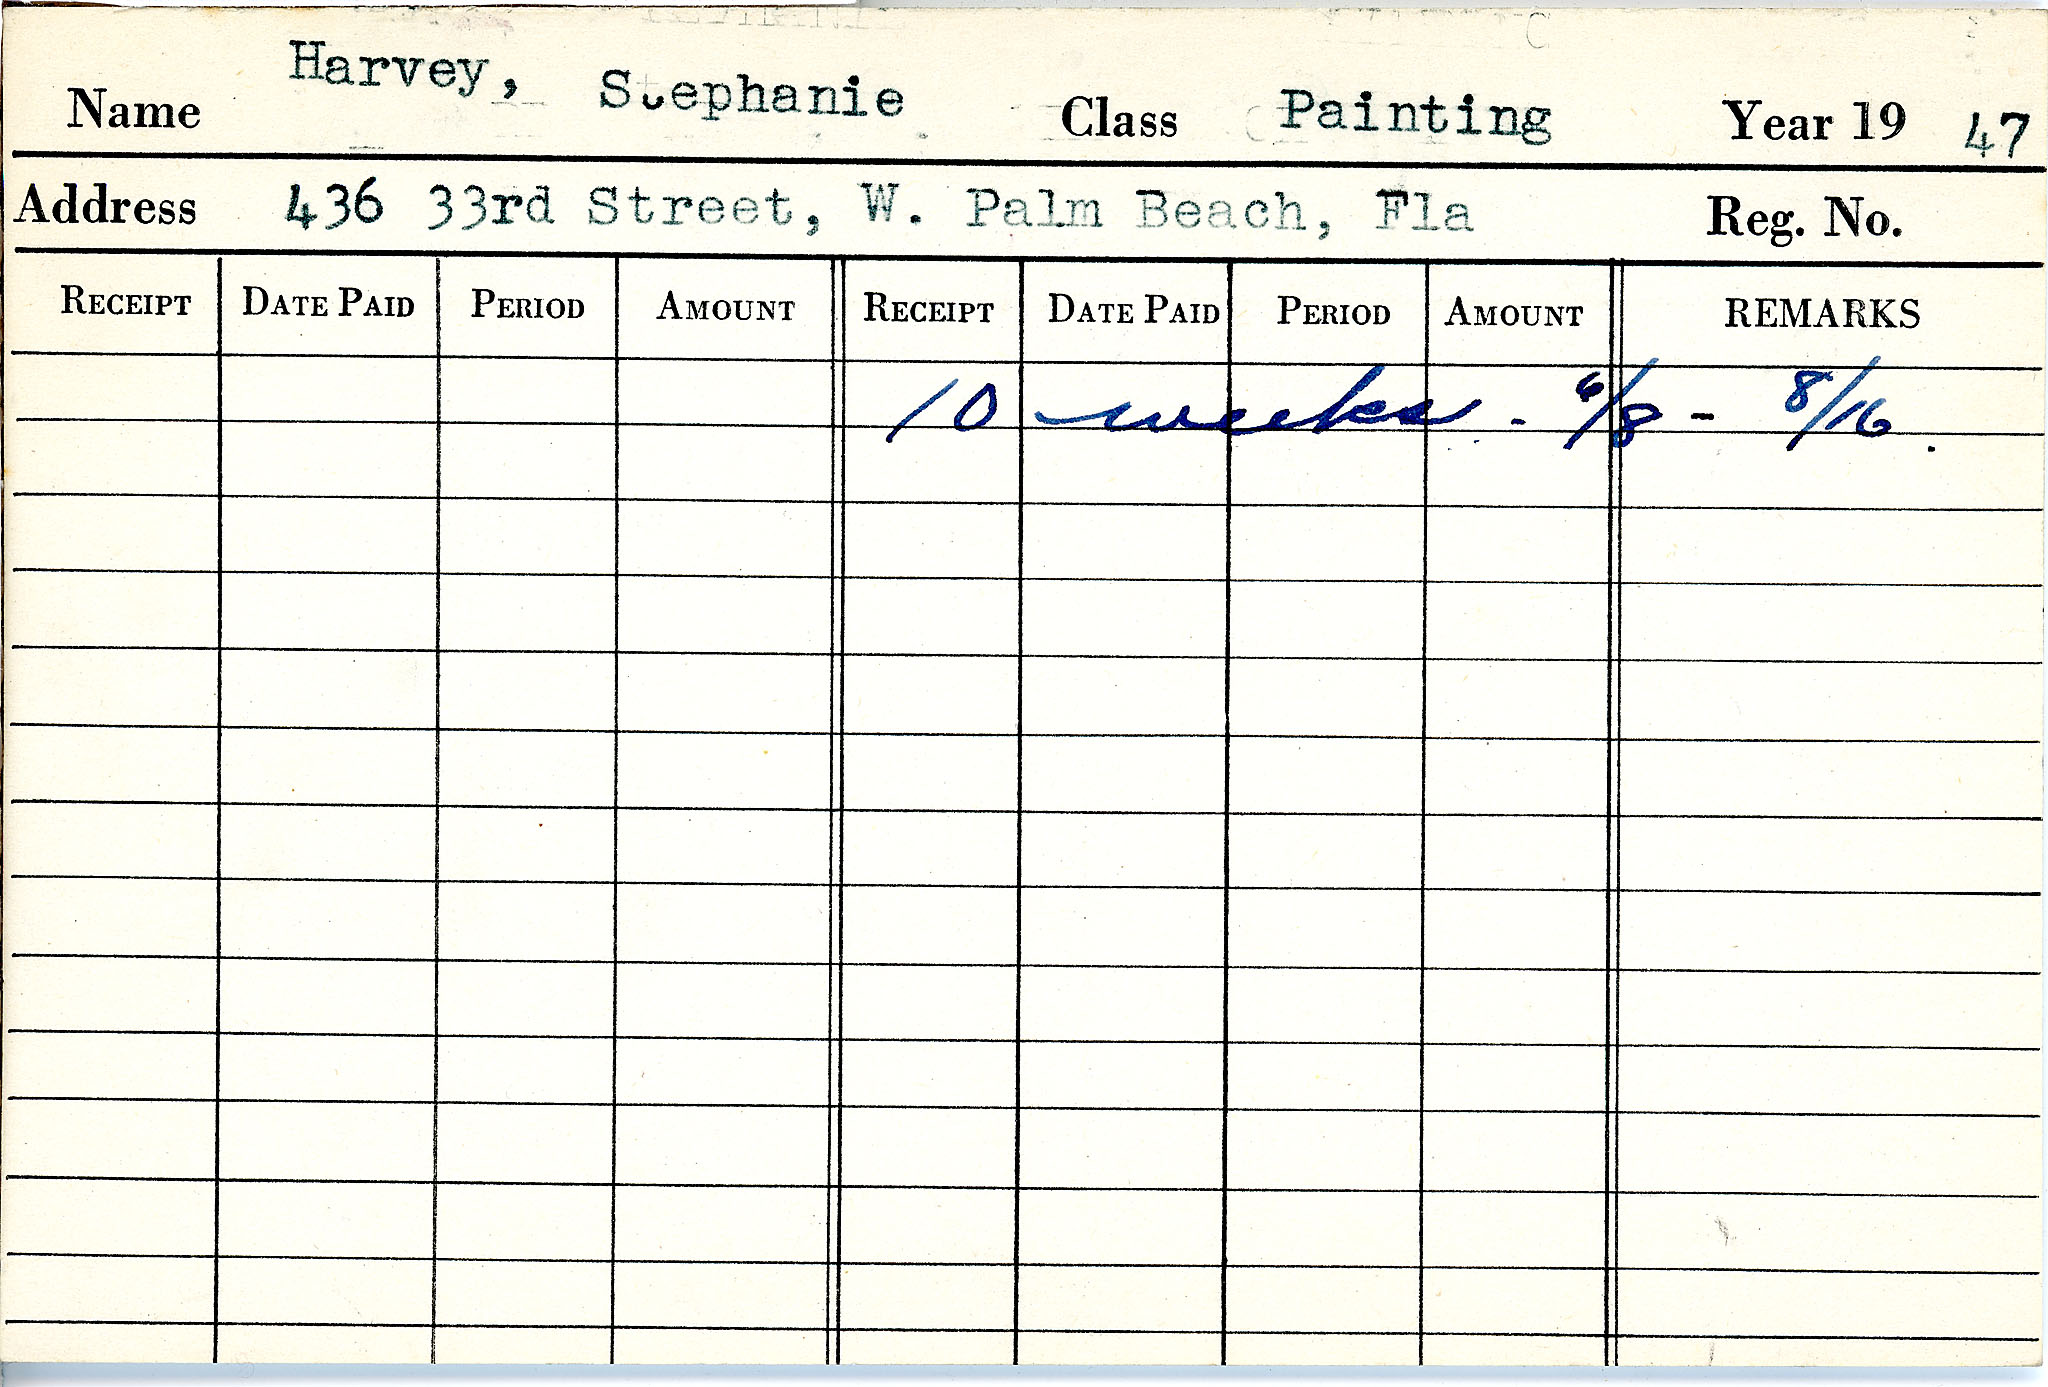 Name Harvey, Stephanie Class Painting Year 19 47
Address 436 33rd Street, W. Palm Beach, Fla Reg. No.
RECEIPT DATE PAID PERIOD AMOUNT RECEIPT DATE PAID PERIOD AMOUNT REMARKS
10 weeks - 6/8 - 8/16.